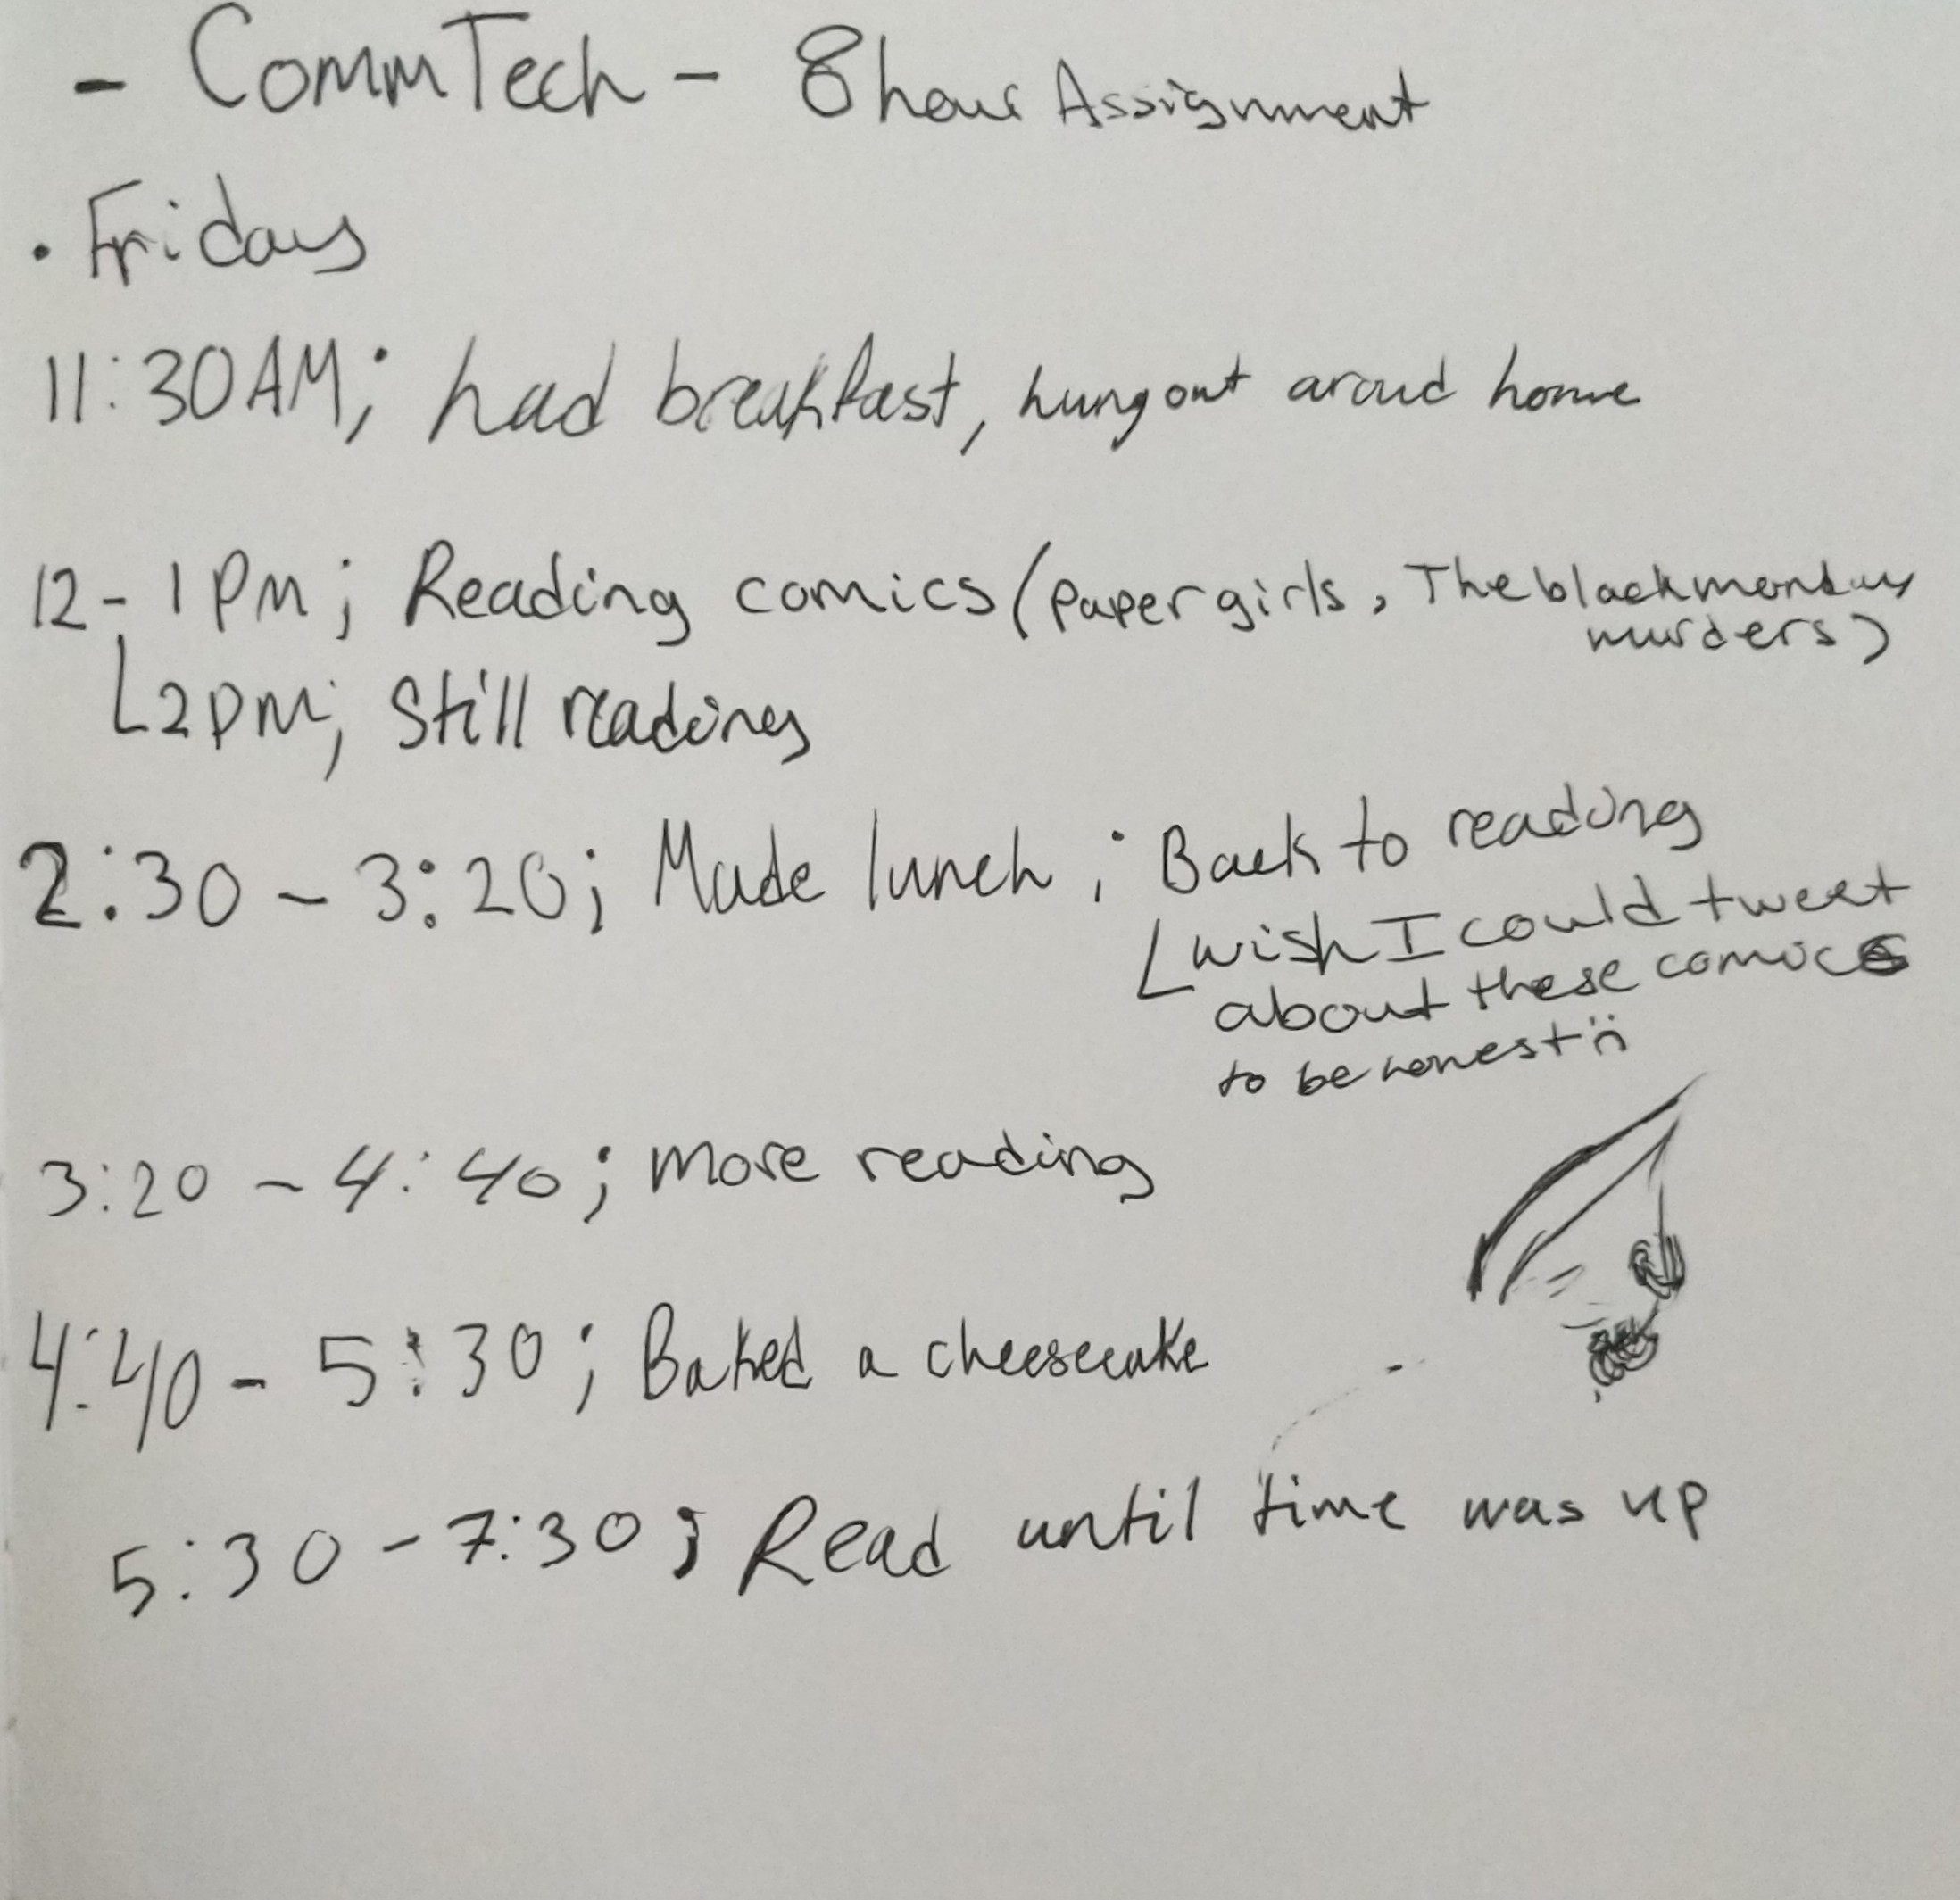 - CommTech - 8 hour Assignment
· Friday
11:30AM; had breakfast, hung out aroud home
12 - 1 PM; Reading comics (Paper girls, The black monday
murders)
2PM; Still reading
2:30 - 3:20; Made lunch; Back to reading
wish I could tweet
about these comics
to be honest :(
3:20 - 4:40; more reading
4:40 - 5:30; Baked a cheesecake
5:30 - 7:30; Read until time was up